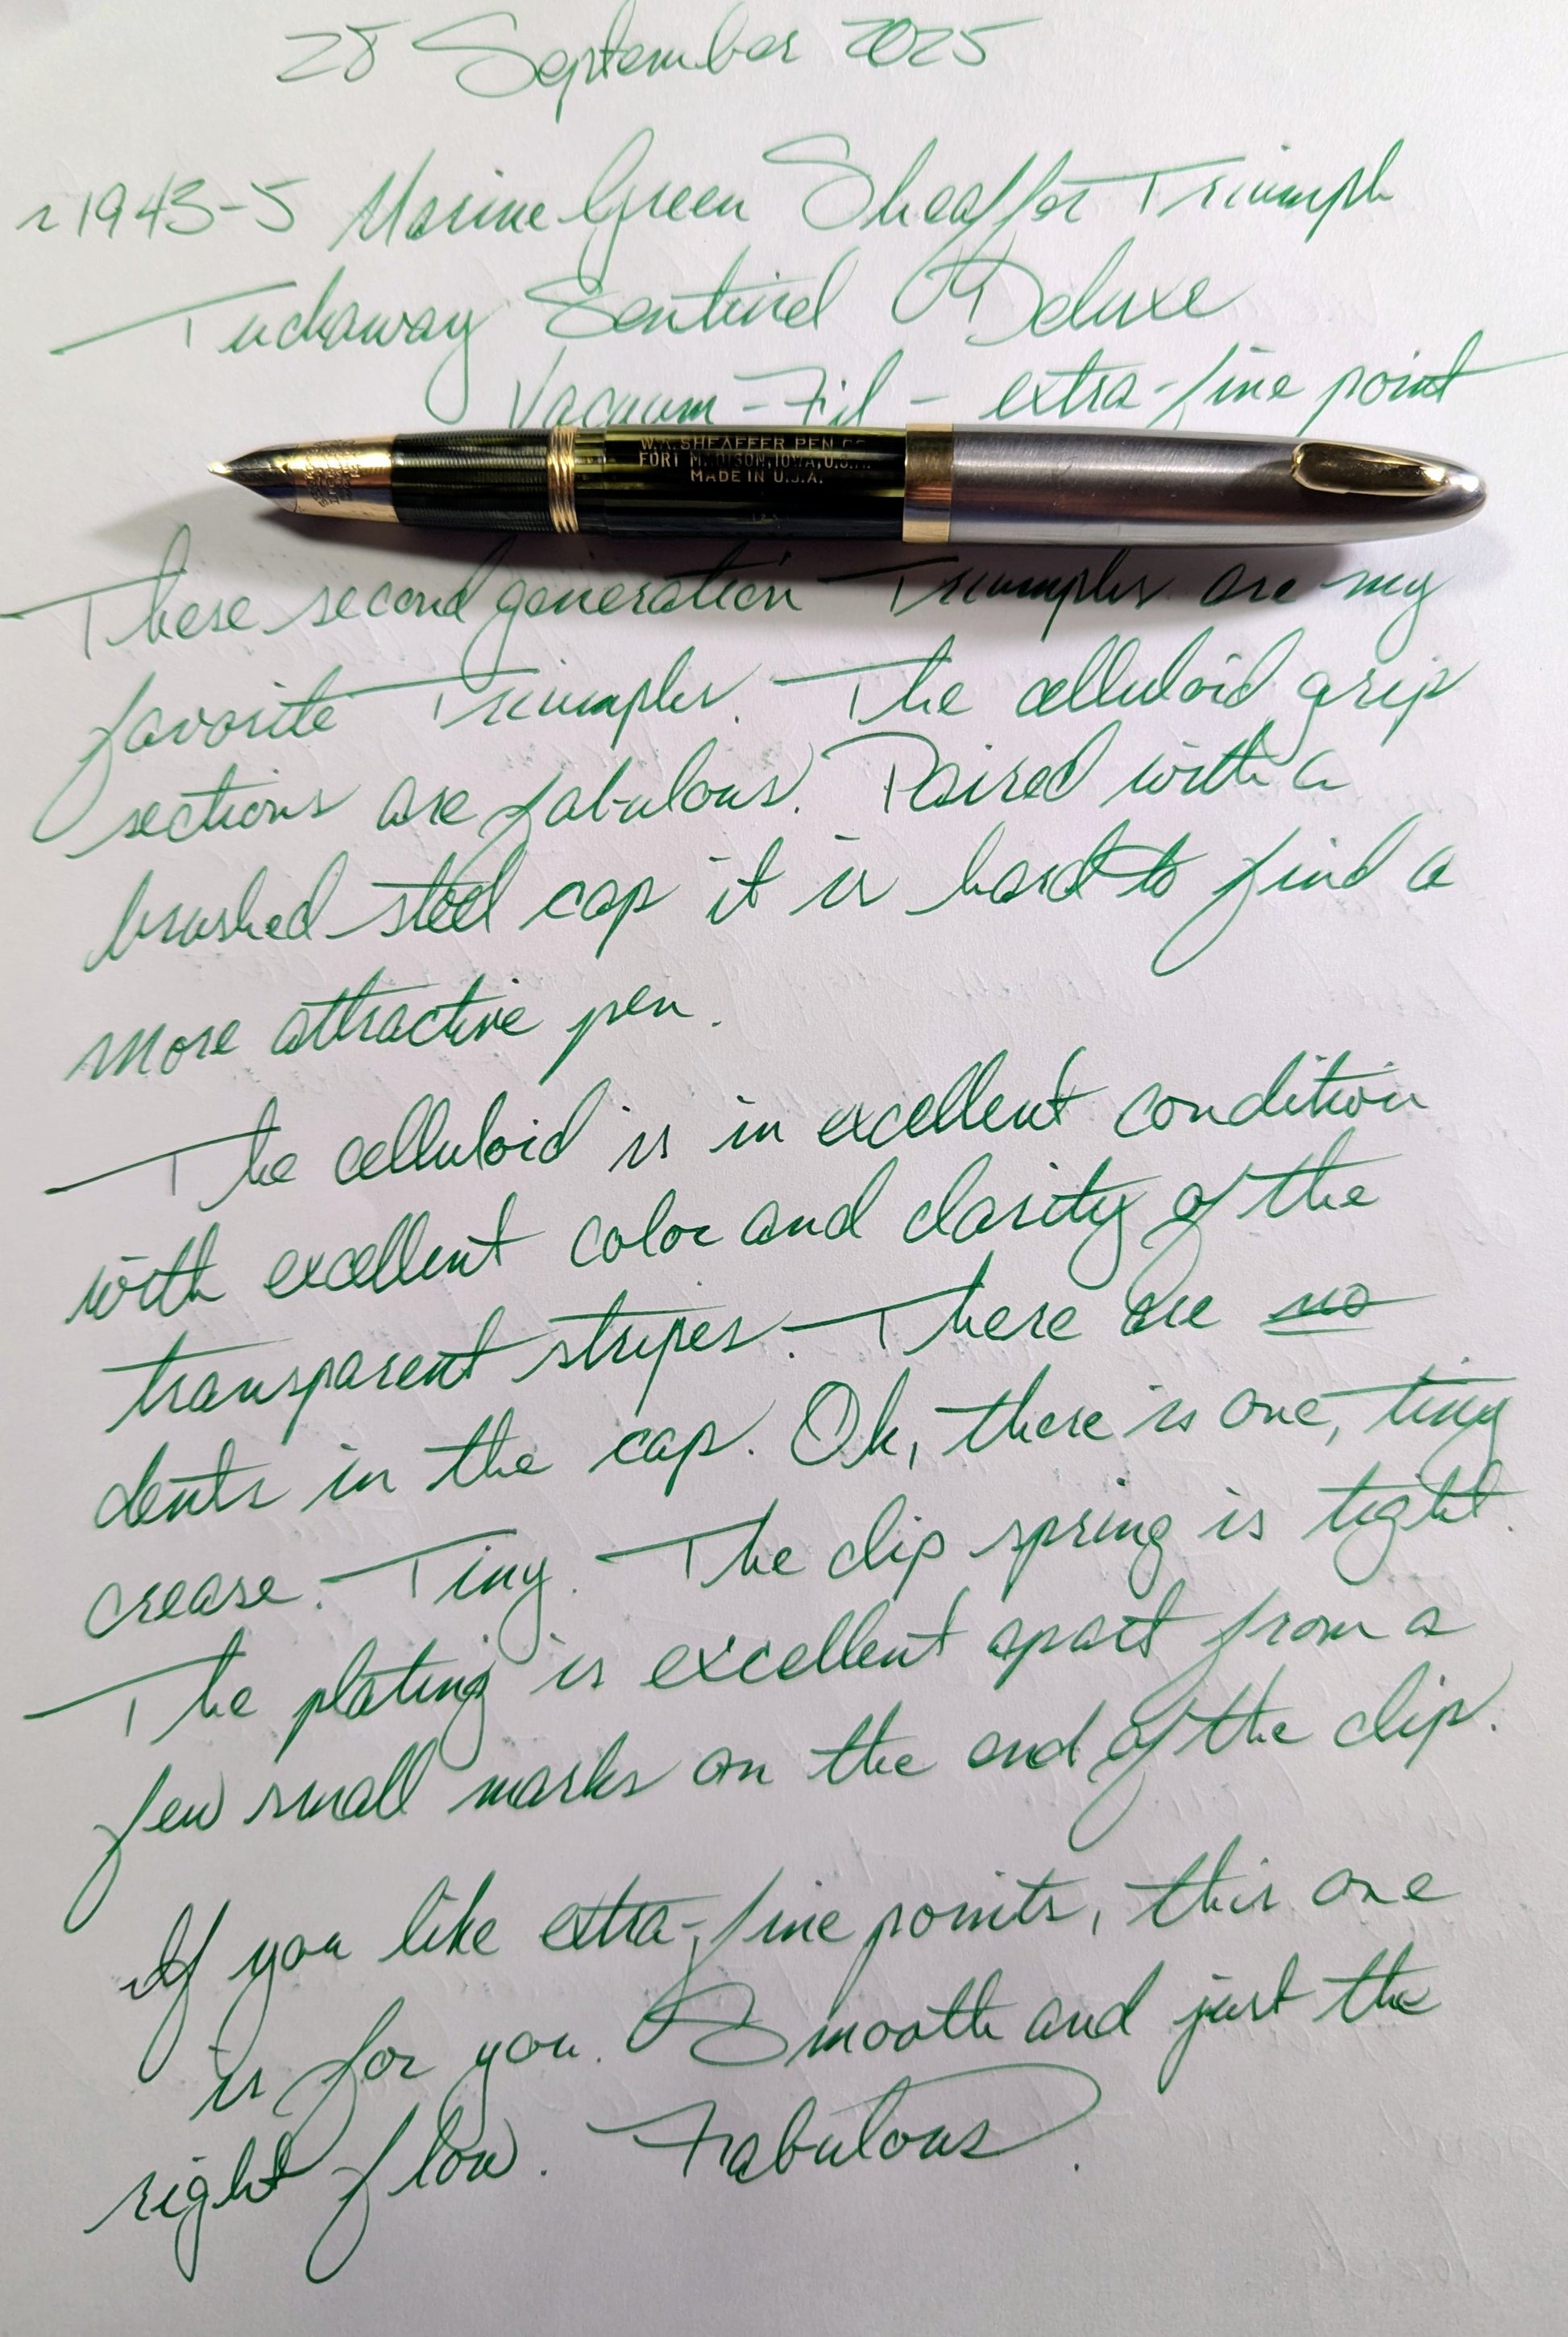 28 September 2025
~1943-5 Marine Green Sheaffer Triumph
Tuckaway Sentinel Deluxe
Vacuum-Fil - extra-fine point
W.A. SHEAFFER PEN CO
FORT MADISON, IOWA, U.S.A.
MADE IN U.S.A.
These second generation Triumphs are my
favorite Triumphs. The celluloid grip
sections are fabulous. Paired with a
brushed steel cap it is hard to find a
more attractive pen.
The celluloid is in excellent condition
with excellent color and clarity of the
transparent stripes. There are no
dents in the cap. Ok, there is one, tiny
crease. Tiny. The clip spring is tight.
The plating is excellent apart from a
few small marks on the end of the clip.
If you like extra-fine points, this one
is for you. Smooth and just the
right flow. Fabulous.